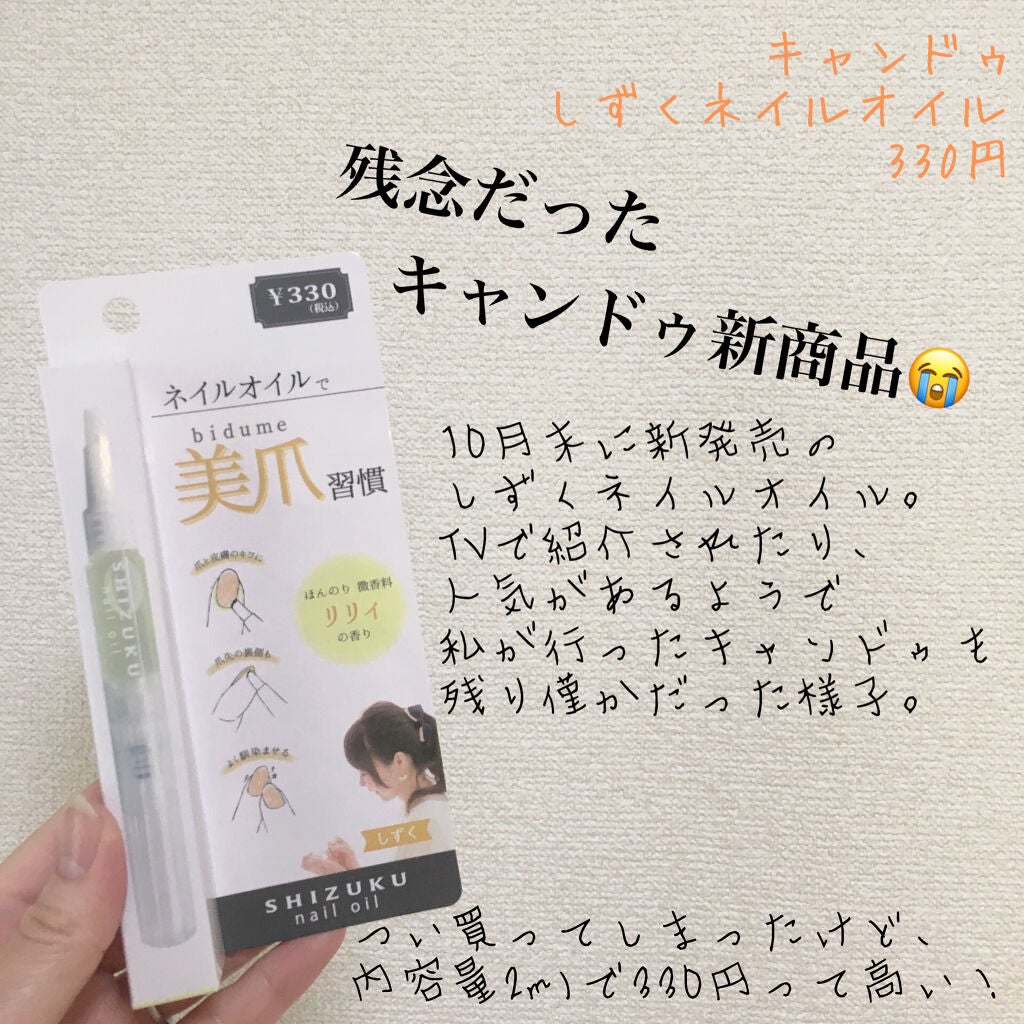 キャンドゥ
しずくネイルオイル
330円
残念だった
キャンドゥ新商品😭
10月末に新発売の
しずくネイルオイル。
TVで紹介されたり、
人気があるようで
私が行ったキャンドゥも
残り僅かだった様子。
つい買ってしまったけど、
内容量2mlで330円って高い!
¥330
(税込)
ネイルオイルで
bidume
美爪習慣
爪と皮膚のキワに
ほんのり 微香料
リリイ
の香り
爪先の裏側も
よく馴染ませる
しずく
SHIZUKU
nail oil
SHIZUKU
nail oil